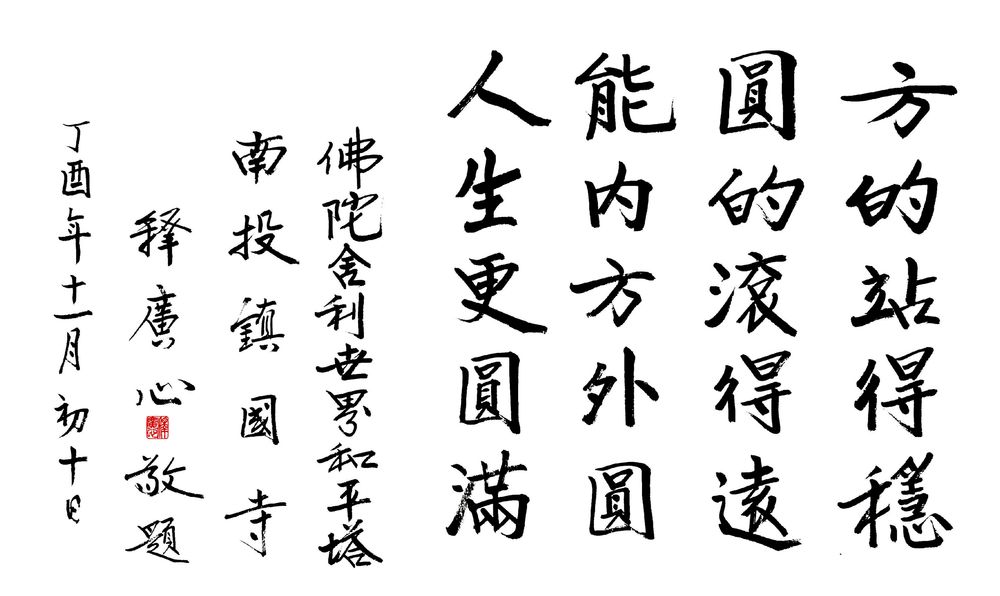 方的站得穩
圓的滾得遠
能內方外圓
人生更圓滿
佛陀舍利世界和平塔
南投鎮國寺
釋廣心敬題
丁酉年十一月初十日